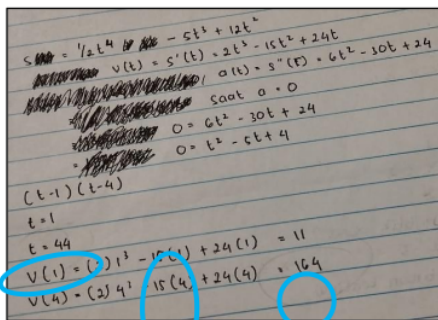 s = 1/2t⁴ - 5t³ + 12t²
v(t) = s'(t) = 2t³ - 15t² + 24t
a(t) = s"(t) = 6t² - 30t + 24
saat a = 0
0 = 6t² - 30t + 24
0 = t² - 5t + 4
(t-1)(t-4)
t = 1
t = 44
v(1) = (2)1³ - 15(1) + 24(1) = 11
v(4) = (2)4³ - 15(4) + 24(4) = 164